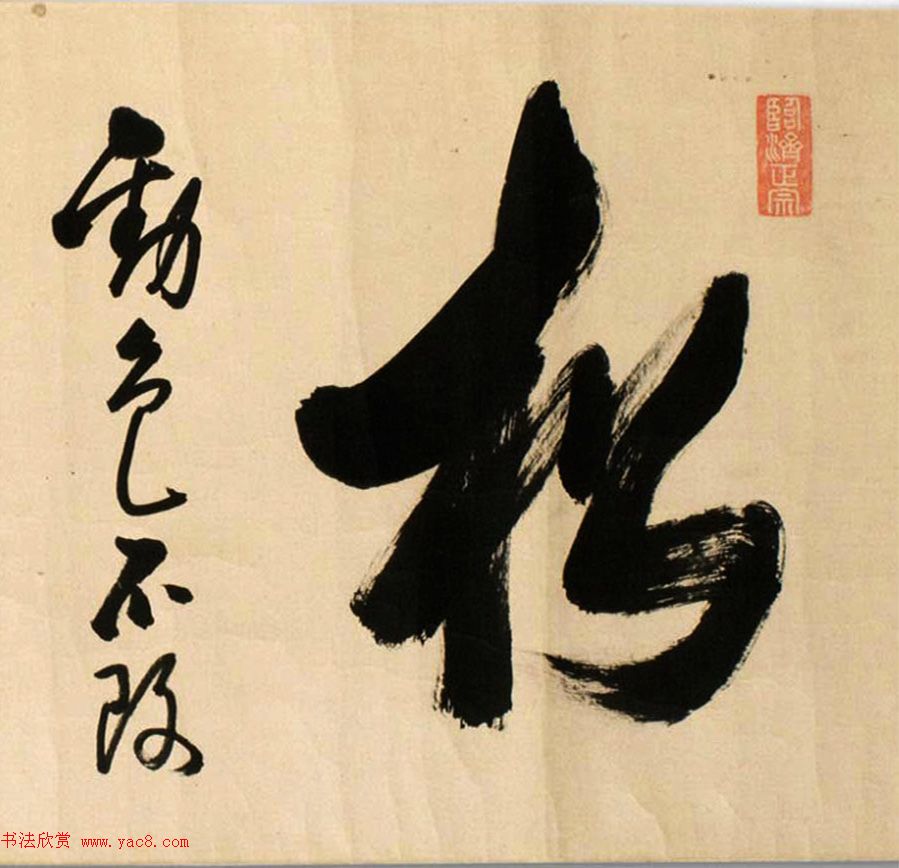 臨濟正宗
松
勁色不改
书法欣赏 www.yac8.com